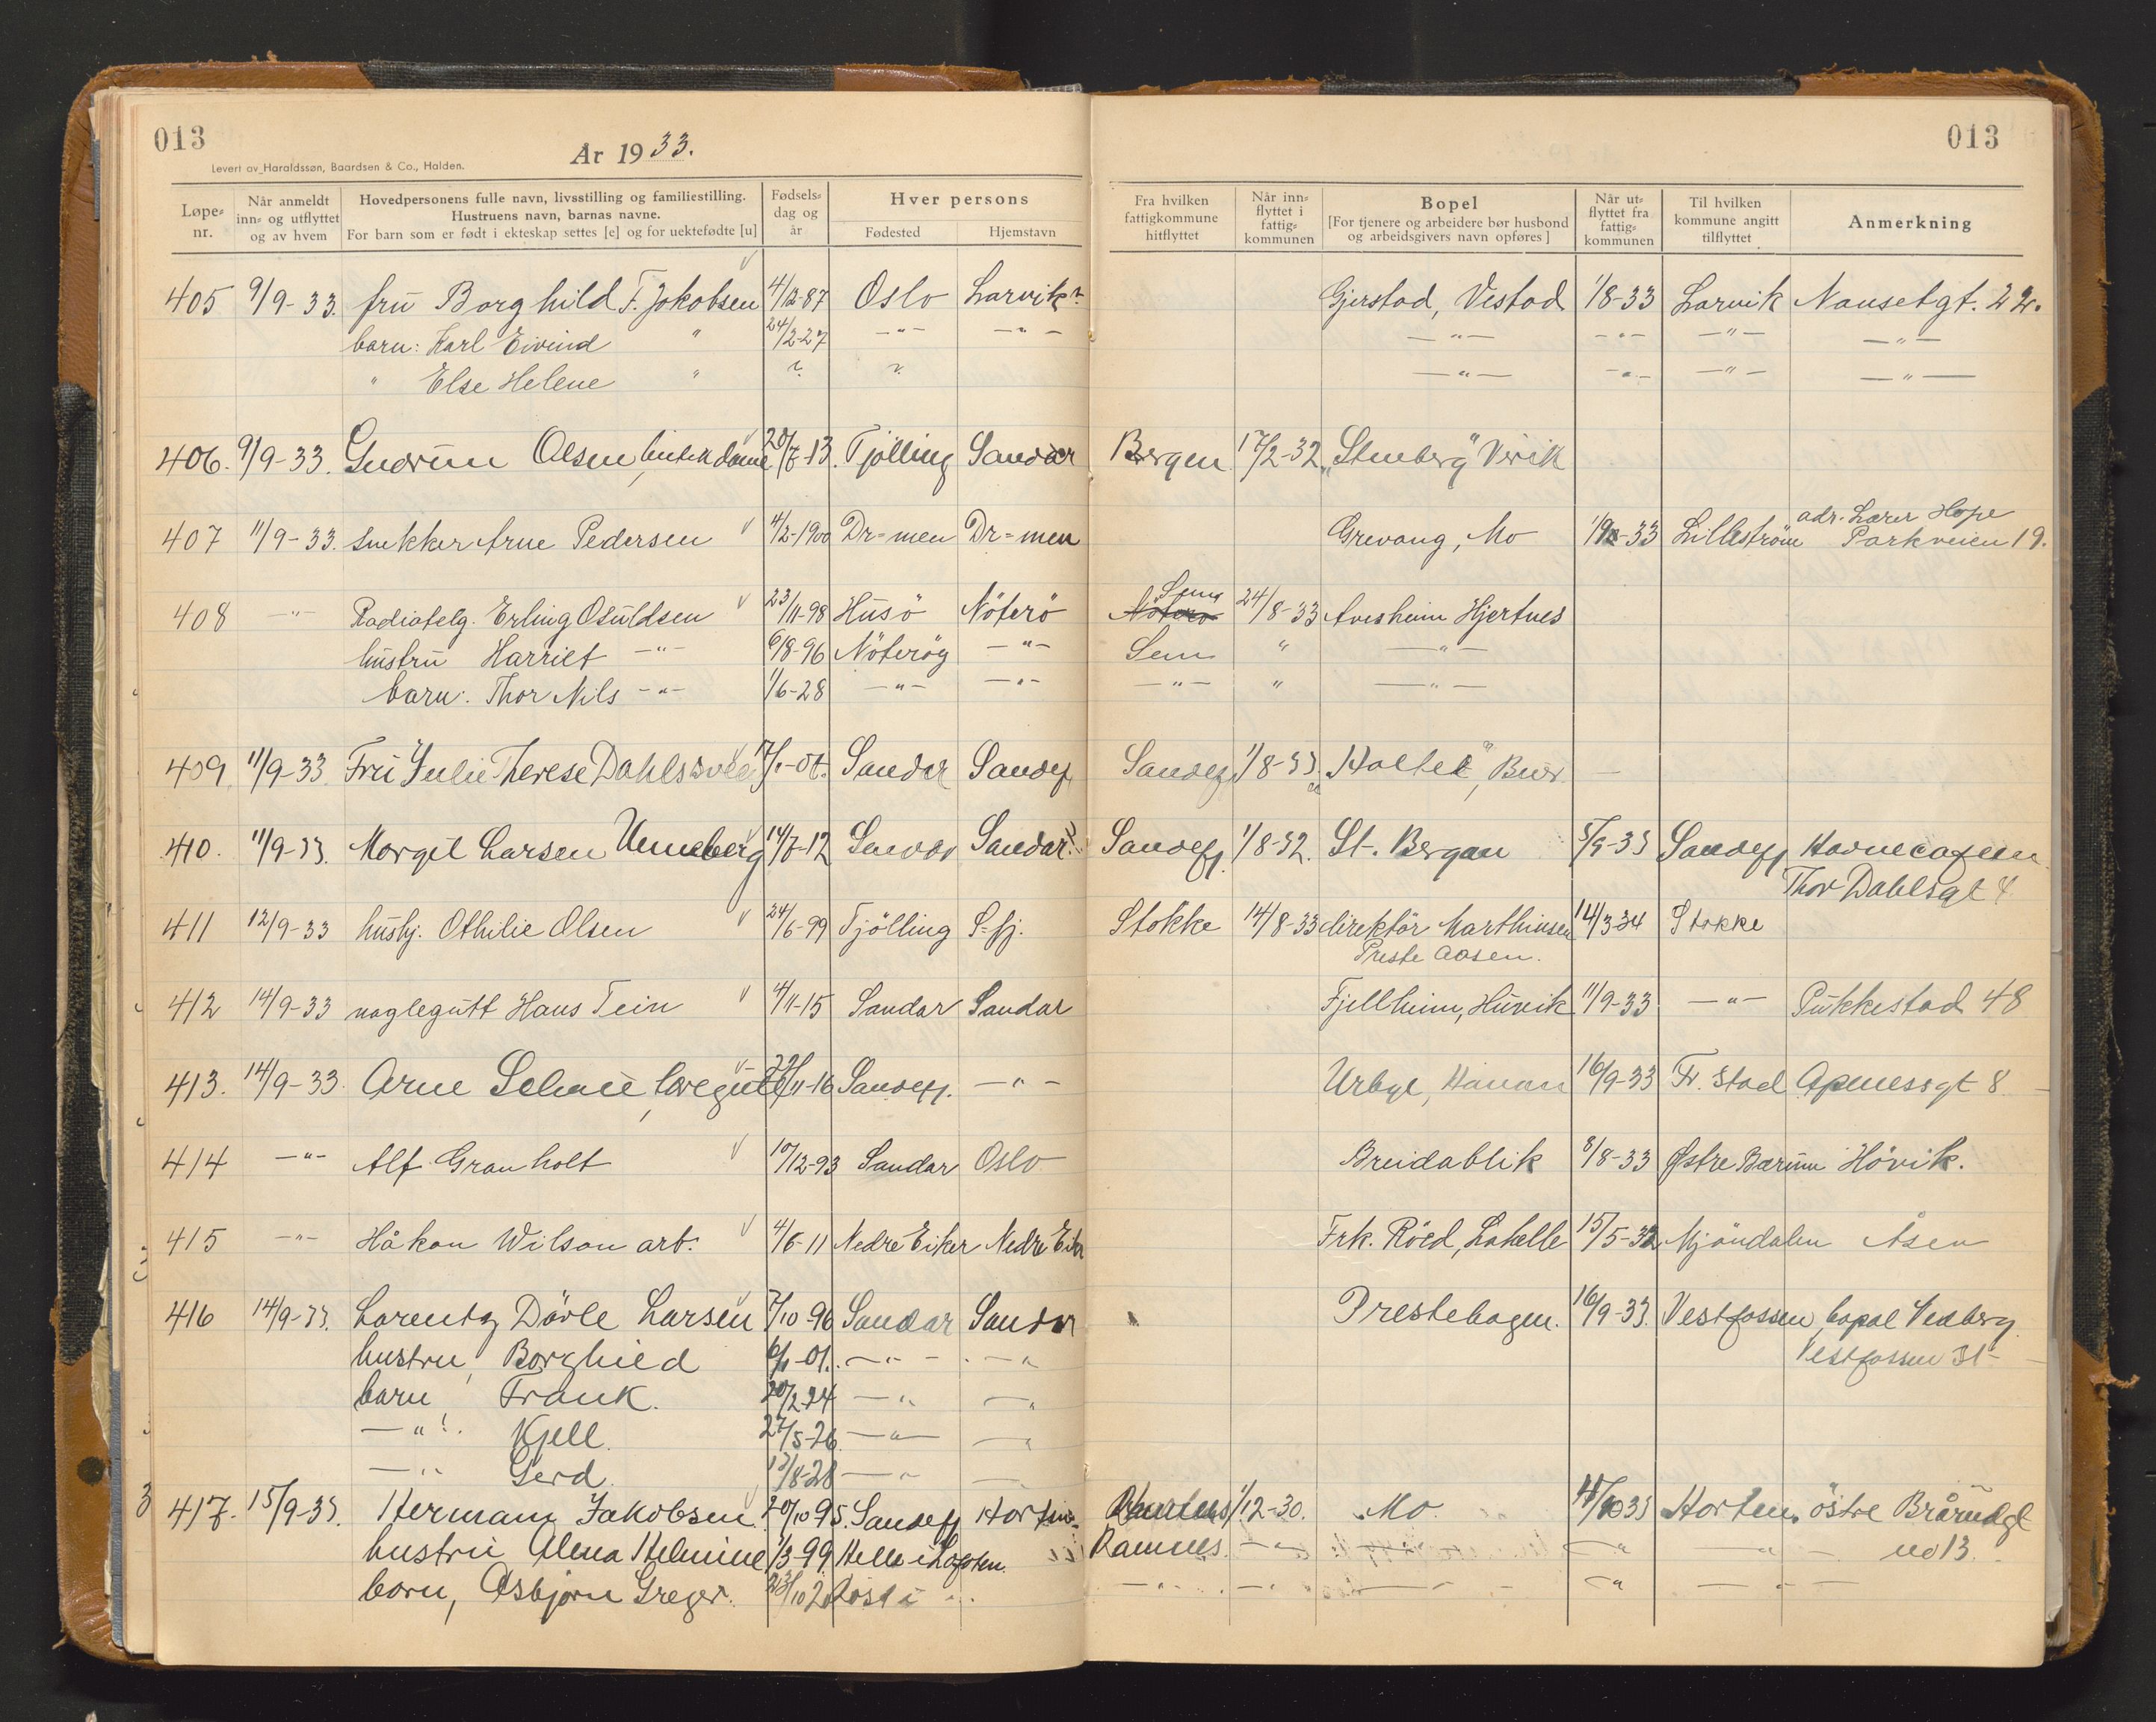 013
013
År 1933.
Levert av Haraldssøn, Baardsen & Co., Halden.
Løpe-nr. Når anmeldt inn- og utflyttet og av hvem Hovedpersonens fulle navn, livsstilling og familiestilling. Hustruens navn, barnas navne. For barn som er født i ekteskap settes [e] og for uektefødte [u] Fødsels-dag og år Hver persons Fødested Hjemstavn Fra hvilken fattigkommune hitflyttet Når inn-flyttet i fattig-kommunen Bopel [For tjenere og arbeidere bør husbond og arbeidsgivers navn opføres] Når ut-flyttet fra fattig-kommunen Til hvilken kommune angitt tilflyttet Anmerkning
405 9/9-33. fru Borghild F. Jakobsen 4/12-87 Oslo Larvik? Gjerstad, Vestad 1/8-33 Larvik Nansetgt. 22.
barn: Karl Eivind " 24/2-27 -"- -"- -"- -"- -"- -"-
" Else Helene " ? ? -"- -"- -"- -"-
406. 9/9-33. Gudrun Olsen, 20/7-13. Tjølling Sandar Bergen 17/2-32 "Stenberg" Virik
407 11/9-33. snekker Arne Pedersen 4/2-1900 Dr=men Dr=men Grevang, Mo 1/9-33 Lillestrøm adr. Lærer Hope
Parkveien 19.
408 -"- Radiotelg. Erling Osuldsen 23/11-98 Husö Nöterö Nöterö Sem 24/8-33 Aresheim Hjertnes
hustru Harriet -"- 6/8-96 Nöteröy -"- Sem " -"-
barn: Thor Nils -"- 1/6-28 -"- -"- -"- " -"-
409. 11/9-33. Fru Julie Therese Sandar Sandefj Sandefj 1/8-33 "Holtet", Buer
410. 11/9-33. Margit Larsen Unneberg 14/7-12 Sandar Sandar? Sandefj. 1/8-32. St. Bergan 5/9-33 Sandefj Havnecafeen
Thor Dahlsgt 4
411 12/9-33 hushj. Othilie Olsen 24/6-99 Tjölling S=fj. Stokke 14/8-33 direktör Marthinsen 14/3-34 Stokke
Preste Aasen.
412 14/9-33 naglegutt Hans Tein 4/11-15 Sandar Sandar Fjellheim, Huvik 11/9-33 -"- Pukkestad 48
413. 14/9-33. Arne 29/11-16 Sandefj. -"- Urbye, 16/9-33 Fr.stad Apenessgt 8
414 -"- Alf Granholt 10/12-93 Sandar Oslo Breidablik 8/8-33 Østre Bærum Hövik.
415 -"- Håkon Wilson arb. 4/6-11 Nedre Eiker Nedre Eiker Frk. Röed, Lahelle 15/5-32 Mjöndalen Åsen
416 14/9-33. Lorentz Dövle Larsen 7/10-96 Sandar Sandar Prestehagen. 16/9-33. Vestfossen, bopæl Vedberg
hustru, Borghild 6/1-01. -"- -"- Vestfossen St-
barn Frank. 20/2-24 -"- -"-
-"- Kjell. 27/5-26 -"- -"-
-"- Gerd. 13/8-28 -"-
417. 15/9-33. Herman Jakobsen 20/10-95. Sandefj Horten 1/12-30. Mo. Horten. östre Brårudgt
hustru Alma Helmine 1/3-99. Helle i Lofoten. Ramnes. -"- -"- -"- -"- no 13.
barn, Asbjørn Greger. -"- -"- -"- -"- -"-